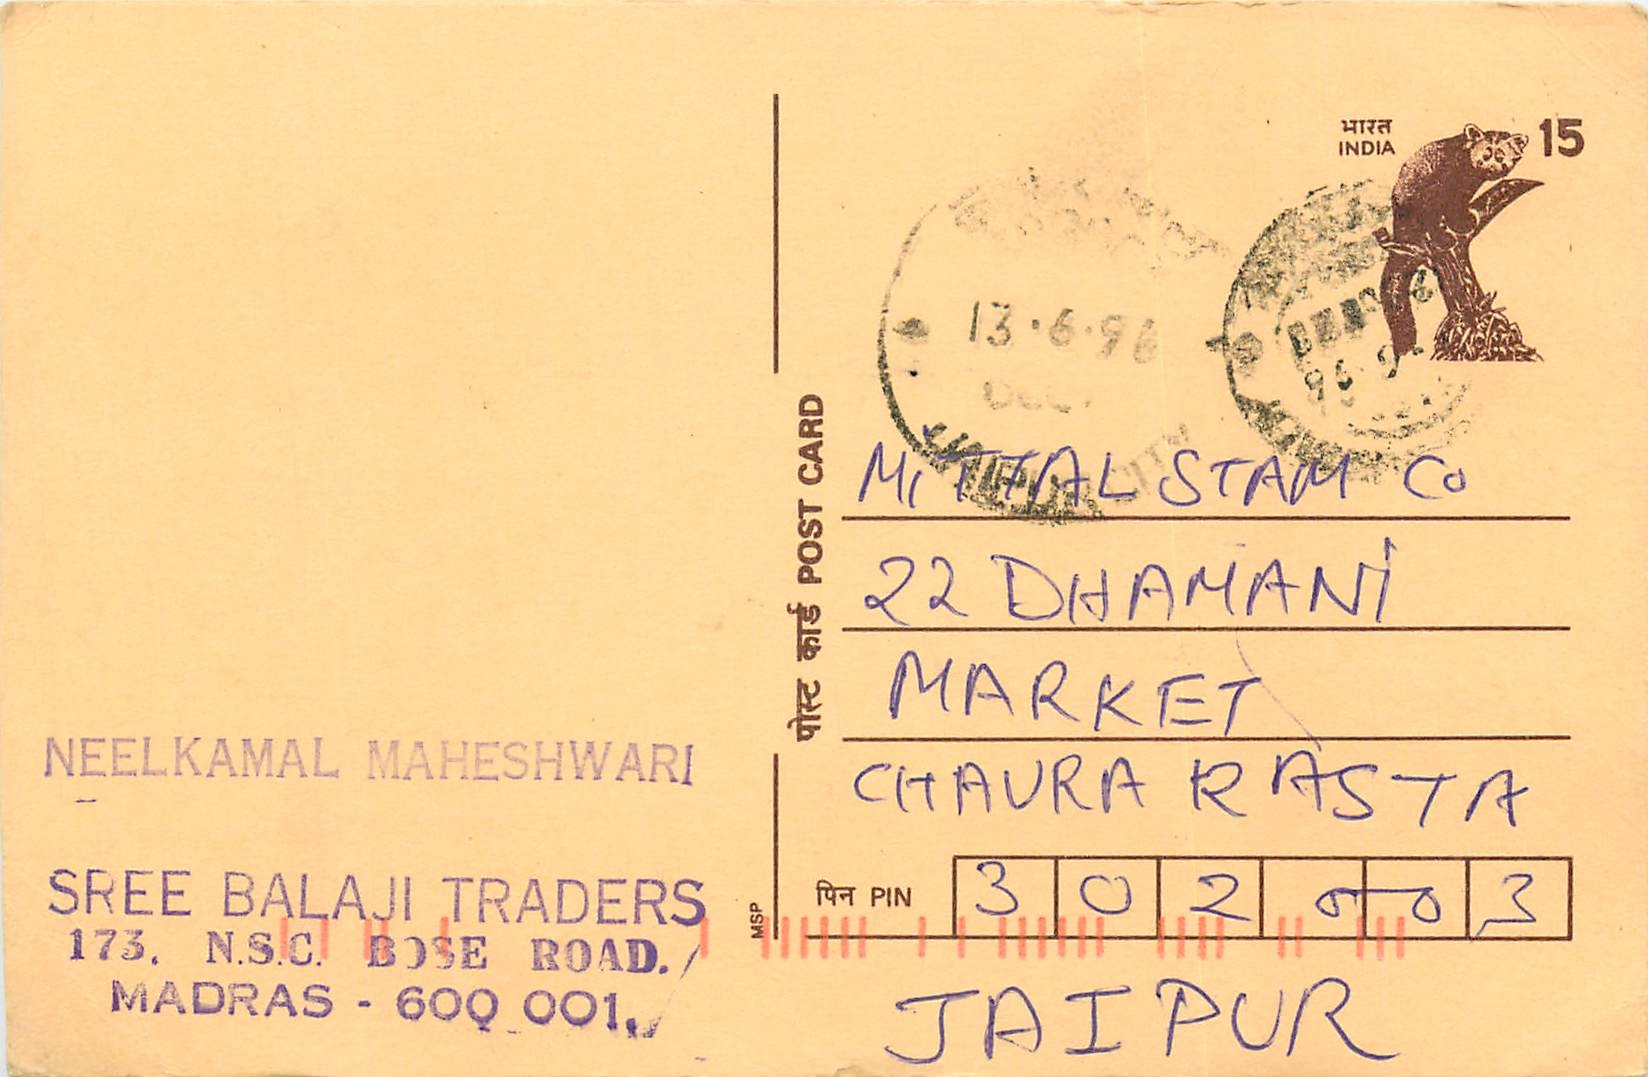 भारत
INDIA
15
13.6.96
JAIPUR CITY
पोस्ट कार्ड POST CARD
MITTAL STAM CO
22 DHAMANI
MARKET
CHAURA RASTA
पिन PIN 302003
JAIPUR
MSP
NEELKAMAL MAHESHWARI
SREE BALAJI TRADERS
173, N.S.C. BOSE ROAD,
MADRAS - 600 001.